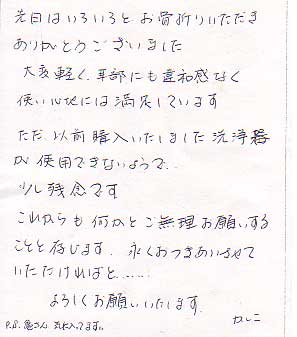 先日はいろいろと お骨折りいただき
ありがとうございました
大変軽く、耳部にも違和感なく
使い心地には満足しています
ただ、以前購入いたしました洗浄器
が使用できないようで..
少し残念です
これからも何かとご無理お願いする
ことと存じます。永くおつきあいさせて
いただければと......
よろしくお願いいたします.
かしこ
P.S. 亀さん 気に入ってます。